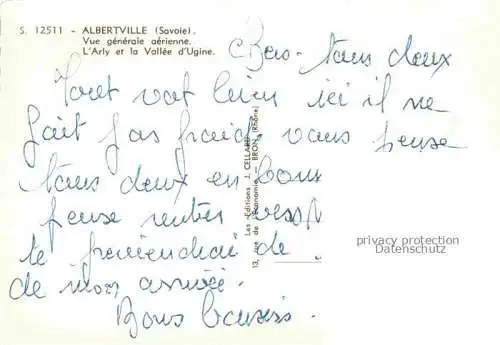 S. 12511 - ALBERTVILLE (Savoie).
Vue générale aérienne.
L'Arly et la Vallée d'Ugine.
Chers tous deux
Tout vat bien ici il ne
fait pas froid vous pense
tous deux en bonn
pense rentrer
te previendrai de
de mon arrivée.
Bons baisers.
Les Editions J. CELLARD
13, rue de l'Economie — BRON (Rhône)
privacy protection
Datenschutz